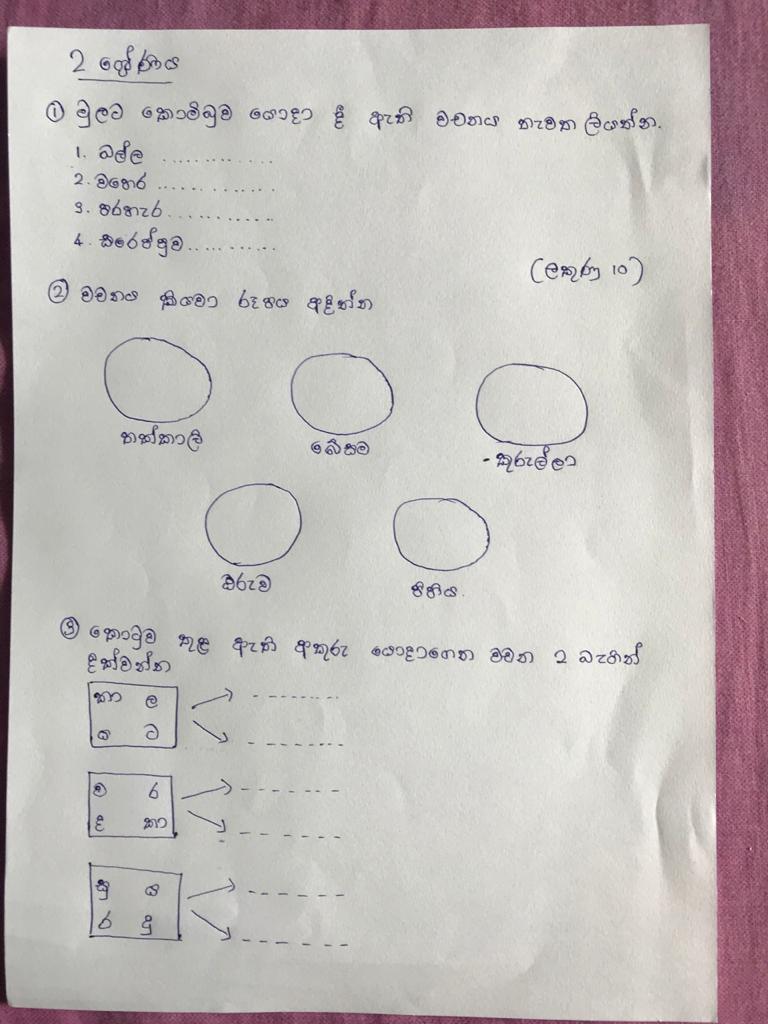 2 ශ්‍රේණිය
① මුලට කොම්බුව යොදා දී ඇති වචනය නැවත ලියන්න.
1. බල්ල ............
2. වහෙර ............
3. පරහැර ............
4. සරෙප්පුව ..........
(ලකුණු 10)
② වචනය කියවා රූපය අඳින්න
තක්කාලි
බේසම
කුරුල්ලා
ඔරුව
පිහිය.
③ කොටුව තුළ ඇති අකුරු යොදාගෙන වචන 2 බැගින්
දක්වන්න
කා ල
ග ට
ව ර
ද කා
සු ය
ර දු